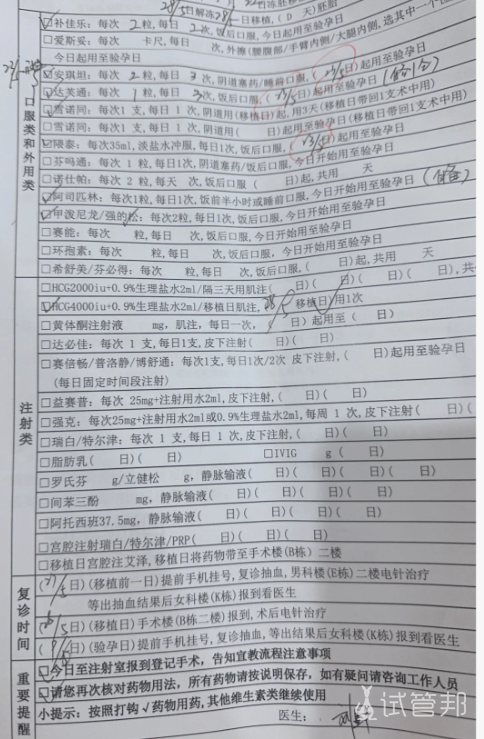 28/5日解冻 28/5日移植,(D 天)胚胎
☑补佳乐:每次 2 粒,每日 2 次,饭后口服,今日开始用至验孕日
□爱斯妥:每次 卡尺,每日 次,外擦(腰腹部/手臂内侧/大腿内侧,选其中一个
今日起用至验孕日
☑安琪坦:每次 2 粒,每日 3 次,阴道塞药/睡前口服,(23/5日)起用至验孕日
☑达芙通:每次 1 粒,每日 3 次,饭后口服,(23/5日)起用至验孕日
☑雪诺同:每次1支,每日 1 次,阴道用(移植日)起,用3天(移植日带回1支术中用)
□雪诺同:每次1支,每日 1 次,阴道用( 日)起用至验孕日(移植日带回1支术中用)
☑隈泰:每次35ml,淡盐水冲服,每日1次,饭后口服,(23/5日)起用至验孕日
□芬吗通:每次 1 粒,每日1次,阴道塞药/饭后口服,今日开始用至验孕日
□诺仕帕:每次 2 粒,每天 次,饭后口服( 日)起,共用 天
☑阿司匹林:每次1粒,每日1次,饭前半小时或睡前口服,今日开始用至验孕日(备)
☑甲泼尼龙/强的松:每次2粒,每日1次,饭后口服,今日开始用至验孕日
□赛能:每次 粒,每日 次,饭后口服,今日开始用至验孕日
□环孢素:每次 粒,每日 次,饭后口服,今日开始用至验孕日
□希舒美/芬必得:每次 粒,每日 次,饭后口服,( 日)起,共用 天
口服类和外用类
□HCG2000iu+0.9%生理盐水2ml/隔三天用肌注( 日)( 日)( 日)( 日),共
☑HCG4000iu+0.9%生理盐水2ml/移植日肌注,28/5移植日用1次
□黄体酮注射液 mg,肌注,每日一次,( 日)起用至( 日)
□达必佳:每次 1 支,每日1支,皮下注射( 日)( 日)
□赛倍畅/普洛静/博舒通:每次1支,每日1次/2次 皮下注射,( 日)起用至验孕日
(每日固定时间段注射)
□益赛普:每次 25mg+注射用水2ml,皮下注射,( 日)( 日)
□强克:每次25mg+注射用水2ml或0.9%生理盐水2ml,每周 1 次,皮下注射( 日)(
□瑞白/特尔津:每次 1 支,每日 1 次,皮下注射,( 日)( 日)
□脂肪乳( 日)( 日) □IVIG g( 日)
□罗氏芬 g/立健松 g,静脉输液( 日)( 日)( 日)
□间苯三酚 mg,静脉输液( 日)( 日)( 日)
□阿托西班37.5mg,静脉输液( 日)( 日)
□宫腔注射瑞白/特尔津/PRP( 日)( 日)
□移植日宫腔注艾泽,移植日将药物带至手术楼(B栋)二楼
注射类
(27/5日)(移植前一日)提前手机挂号,复诊抽血,男科楼(E栋)二楼电针治疗
等出抽血结果后女科楼(K栋)报到看医生
(28/5日)(移植日)手术楼(B栋二楼)报到,术后电针治疗
日)(验孕日)提前手机挂号,复诊抽血,等出结果后女科楼(K栋)报到看医生
复诊时间
☑今日至注射室报到登记手术,告知宣教流程注意事项
☑请您再次核对药物用法,所有药物请按说明保存,如有疑问请咨询工作人员
小提示:按照打钩√药物用药,其他维生素类继续使用
重要提醒
医生:
试管邦